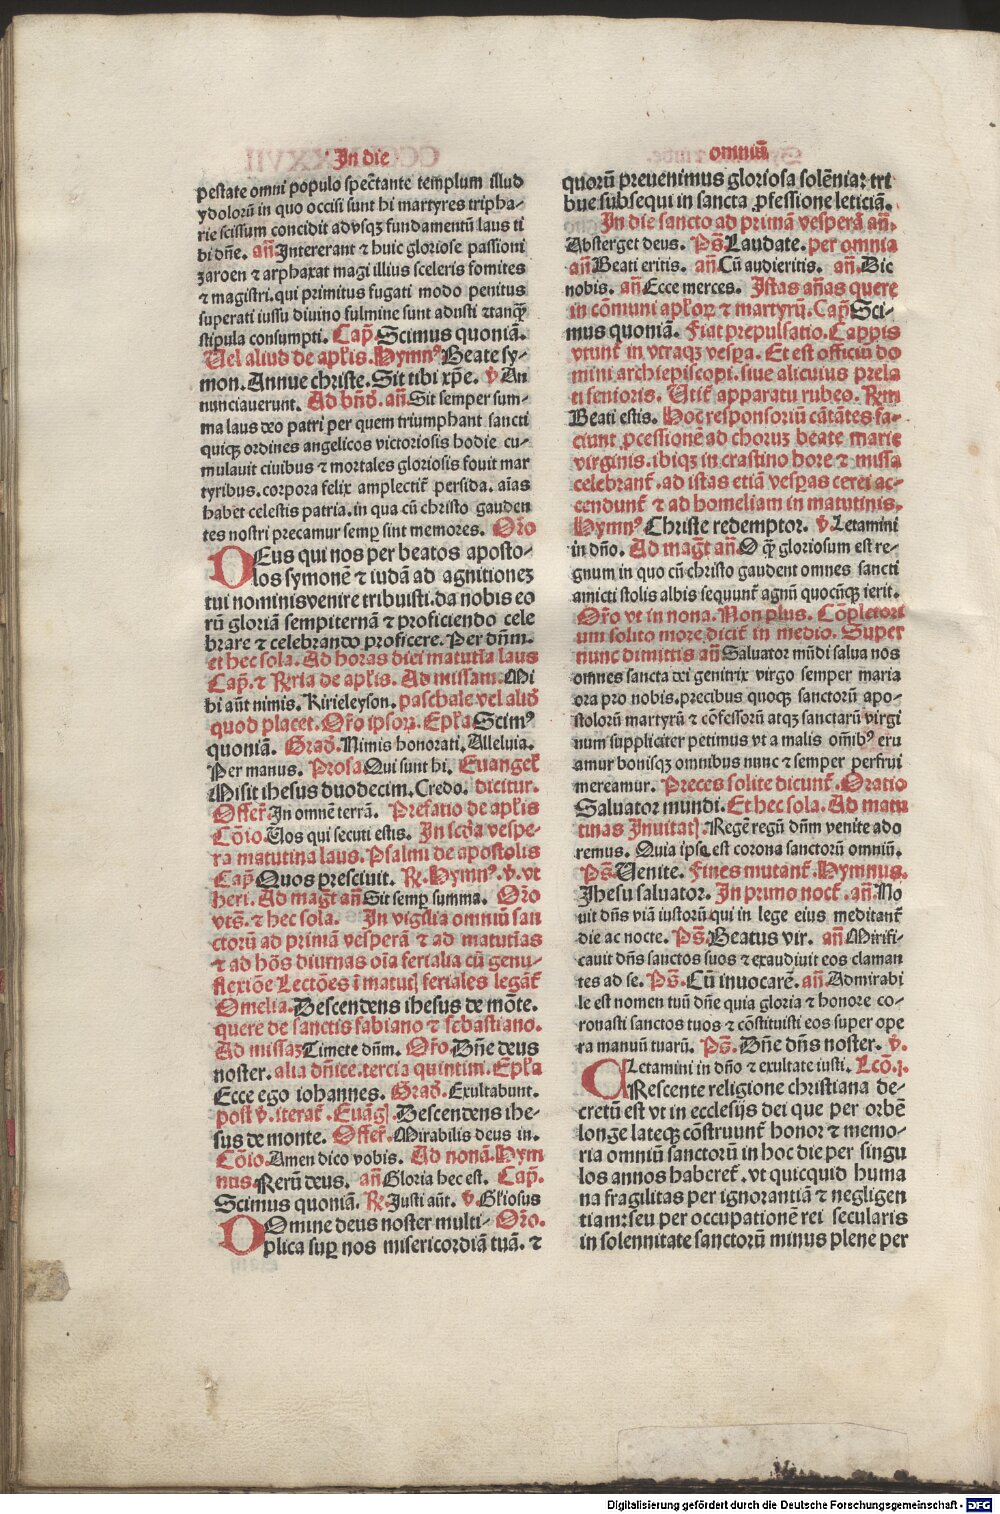 In die
pestate omni populo spectante templum illud
ydolorū in quo occisi sunt hi martyres tripha-
rie scissum concidit adusqꝫ fundamentū laus ti
bi dn̄e. an̄ Intererant ⁊ huic gloriose passioni
zaroen ⁊ arphaxat magi illius sceleris fomites
⁊ magistri. qui primitus fugati modo penitus
superati iussu diuino fulmine sunt adusti ⁊tanqꝫ
stipula consumpti. Cap̄. Scimus quoniā.
Uel aliud de apl̄is. Hymnꝰ Beate sy-
mon. Annue christe. Sit tibi xp̄e. v̄ An
nunciauerunt. Ad bn̄d. an̄ Sit semper sum-
ma laus deo patri per quem triumphant sancti
quiqꝫ ordines angelicos victoriosis hodie cu-
mulauit ciuibus ⁊ mortales gloriosis fouit mar
tyribus. corpora felix amplectit̄ persida. aīas
habet celestis patria. in qua cū christo gauden
tes nostri precamur semꝑ sint memores. Or̄o
DEus qui nos per beatos aposto-
los symonē ⁊ iudā ad agnitionez
tui nominis venire tribuisti. da nobis eo
rū gloriā sempiternā ⁊ proficiendo cele
brare ⁊ celebrando proficere. Per dn̄m.
et hec sola. Ad horas diei matutīa laus
Cap̄. ⁊ R̄ria de apl̄is. Ad missam. Mi
hi aūt nimis. Kirieleyson. paschale vel aliō
quod placet. Or̄o ipsoꝝ. Epl̄a Scimꝰ
quoniā. Grad̄. Nimis honorati. Alleluia.
Per manus. Prosa Qui sunt hi. Euangel̄
Misit ihesus duodecim. Credo. dicitur.
Offer̄. In omnē terrā. Prefatio de apl̄is
Cōio. Uos qui secuti estis. In scd̄a vespe-
ra matutina laus. Psalmi de apostolis
Cap̄ Quos presciuit. R̄. Hymnꝰ. v̄. vt
heri. Ad maḡt an̄ Sit semꝑ summa. Or̄o
vts̄. ⁊ hec sola. In vigilia omniū san
ctorū ad primā vesperā ⁊ ad matutīas
⁊ ad hōs diurnas oīa ferialia cū genu-
flexiōe Lectōes ī matut̄ feriales legāt̄
Omelia. Descendens ihesus de mōte.
quere de sanctis fabiano ⁊ sebastiano.
Ad missaꝫ Timete dn̄m. Or̄o. Dn̄e deus
noster. alia dn̄ice. tercia quintim. Epl̄a
Ecce ego iohannes. Grad̄. Exultabunt.
post v̄. iterat̄. Euāḡ. Descendens ihe-
sus de monte. Offer̄. Mirabilis deus in.
Cōio. Amen dico vobis. Ad nonā. Hym
nus. Rerū deus. an̄ Gloria hec est. Cap̄.
Scimus quoniā. R̄. Justi aūt. v̄. Gl̄iosus
DOmine deus noster multi- Or̄o.
plica suꝑ nos misericordiā tuā. ⁊
omniū
quorū preuenimus gloriosa solēnia: tri
bue subsequi in sancta ꝓfessione leticiā.
In die sancto ad primā vesperā an̄.
Absterget deus. Ps̄. Laudate. per omnia
an̄ Beati eritis. an̄. Cū audieritis. an̄. Dic
nobis. an̄ Ecce merces. Istas an̄as quere
in cōmuni apl̄oꝝ ⁊ martyrū. Cap̄ Sci-
mus quoniā. Fiat prepulsatio. Cappis
vtunt̄ in vtraqꝫ vesp̄a. Et est officiū do
mini archiepiscopi. siue alicuius prela
ti senioris. Utit̄ apparatu rubeo. R̄m
Beati estis. Hoc responsoriū cātātes fa-
ciunt ꝓcessionē ad chorum beate marie
virginis. ibiqꝫ in crastino hore ⁊ missa
celebrant̄. ad istas etiā vesꝑas cerei ac-
cendunt̄ ⁊ ad homeliam in matutinis.
Hymnꝰ Christe redemptor. v̄. Letamini
in dn̄o. Ad maḡt an̄. O qꝫ gloriosum est re-
gnum in quo cū christo gaudent omnes sancti
amicti stolis albis sequunt̄ agnū quocūqꝫ ierit.
Or̄o vt in nona. Non plus. Cōpletori
um solito more dicit̄ in medio. Super
nunc dimittis an̄ Saluator mūdi salua nos
omnes sancta dei genitrix virgo semper maria
ora pro nobis. precibus quoqꝫ sanctorū apo-
stolorū martyrū ⁊ cōfessorū atqꝫ sanctarū virgi
num suppliciter petimus vt a malis om̄ibꝰ eru
amur bonisqꝫ omnibus nunc ⁊ semper perfrui
mereamur. Preces solite dicunt̄. Oratio
Saluator mundi. Et hec sola. Ad matu
tinas Inuitat̄. Regē regū dn̄m venite ado
remus. Quia ipse est corona sanctorū omniū.
Ps̄. Uenite. Fines mutant̄. Hymnus.
Jhesu saluator. In primo noct̄. an̄. No
uit dn̄s viā iustorū qui in lege eius meditant̄
die ac nocte. Ps̄. Beatus vir. an̄ Mirifi-
cauit dn̄s sanctos suos ⁊ exaudiuit eos claman
tes ad se. Ps̄. Cū inuocarē. an̄. Admirabi
le est nomen tuū dn̄e quia gloria ⁊ honore co-
ronasti sanctos tuos ⁊ cōstituisti eos super ope
ra manuū tuarū. Ps̄. Dn̄e dn̄s noster. v̄.
Letamini in dn̄o ⁊ exultate iusti. Lcō. j.
CRescente religione christiana de-
cretū est vt in ecclesijs dei que per orbē
longe lateqꝫ cōstruunt̄ honor ⁊ memo-
ria omniū sanctorū in hoc die per singu
los annos haberet̄. vt quicquid huma
na fragilitas per ignorantiā ⁊ negligen
tiam: seu per occupationē rei secularis
in solennitate sanctorū minus plene per
Digitalisierung gefördert durch die Deutsche Forschungsgemeinschaft - DFG